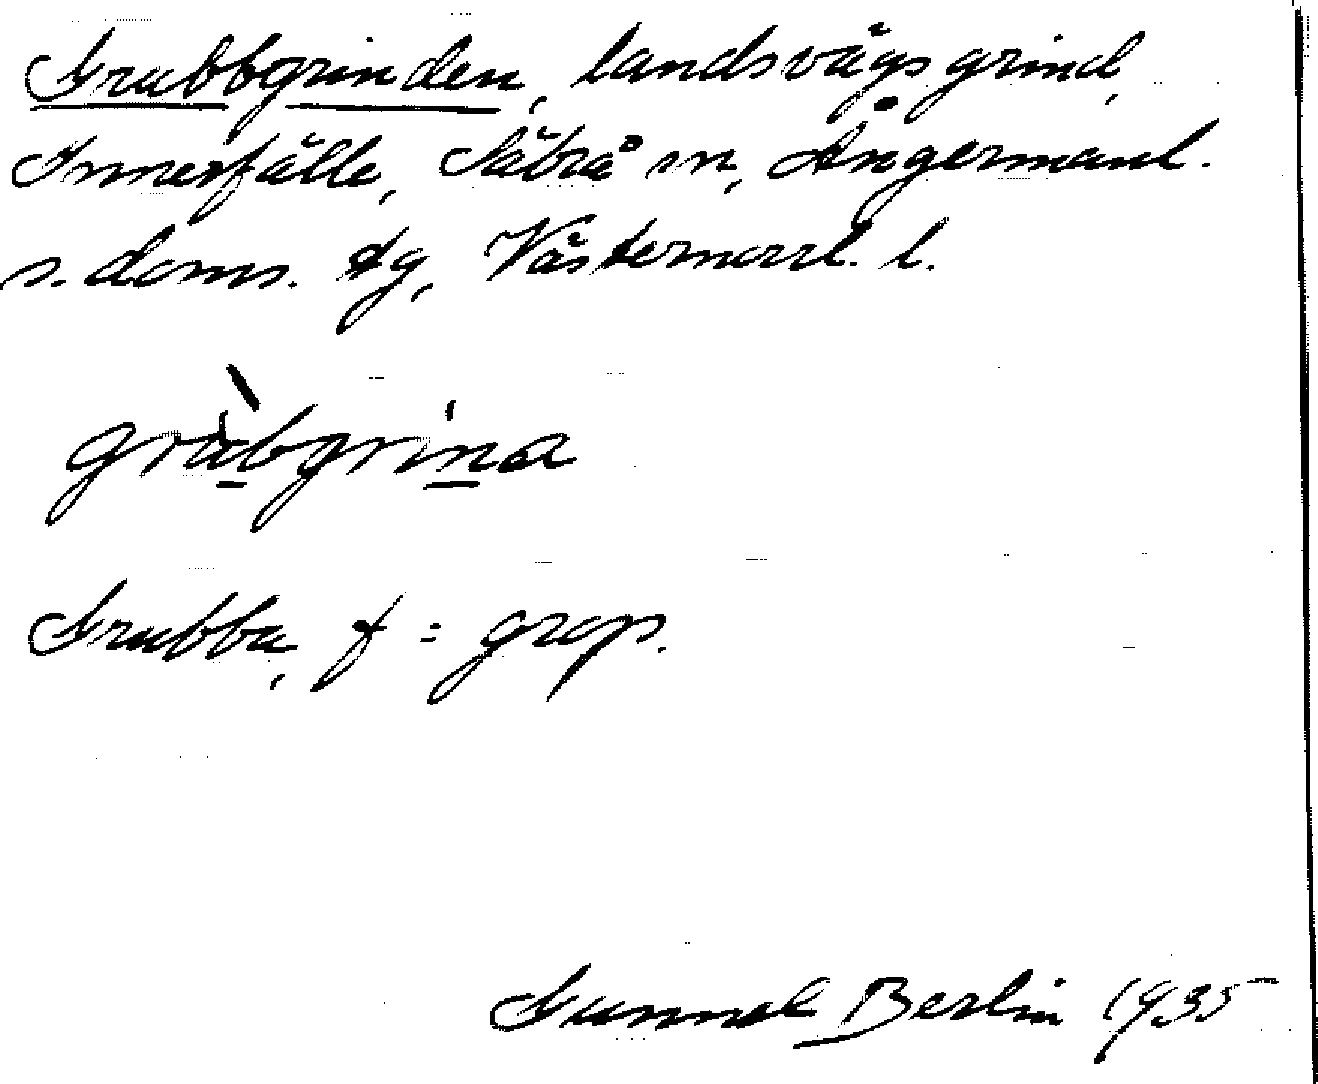 Grubbgrinden, landsvägsgrind,
Innerfälle, Säbrå sn, Ångermanl.
s. doms. tg, Västernorrl. l.
grùbgrina
Grubba, f = grop.
Gunnel Berlin 1935